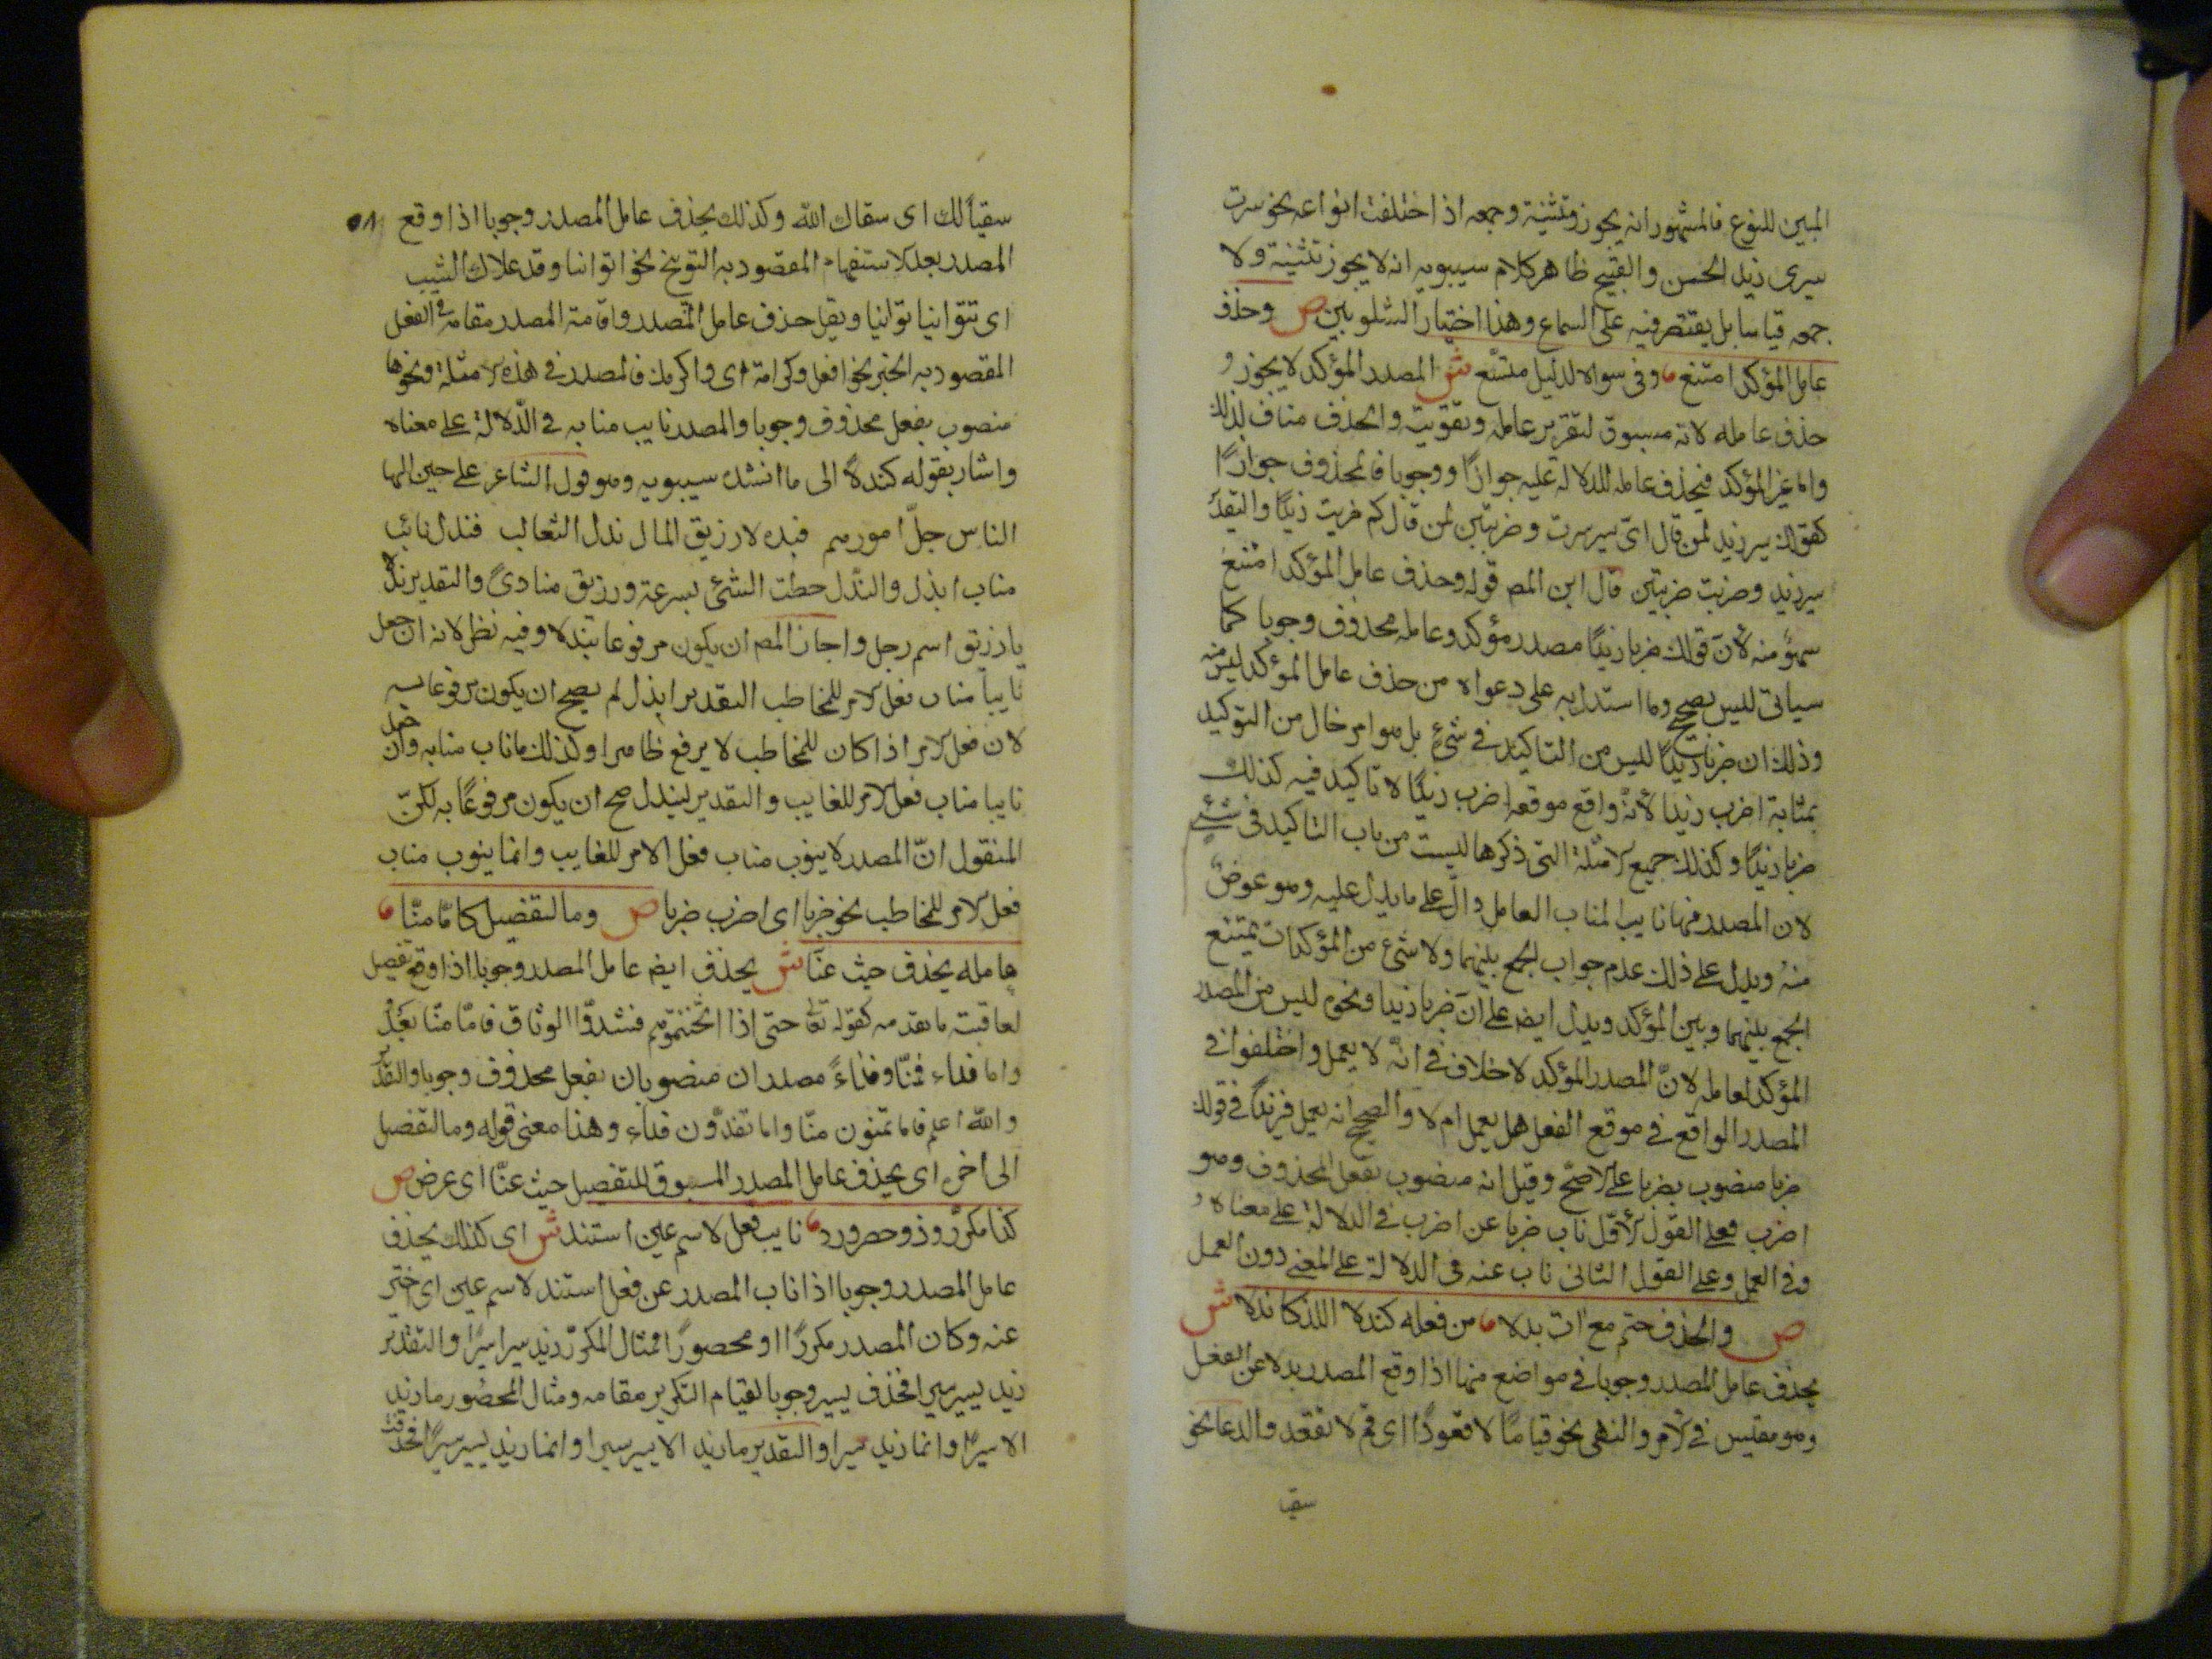 المبين للنوع فالمشهور انه يجوز تثنيته وجمعه اذا اختلفت انواعه نحو سرت
سيرى زيد الحسن والقبيح ظاهر كلام سيبويه انه لا يجوز تثنيته ولا
جمعه قياسا بل يقتصر فيه على السماع وهذا اختيار الشلوبين ص وحذف
عامل المؤكد امتنع وفى سواه لدليل متسع ش المصدر المؤكد لا يجوز
حذف عامله لانه مسوق لتقرير عامله وتقويته والحذف مناف لذلك
واما غير المؤكد فيحذف عامله للدلالة عليه جوازا ووجوبا فالمحذوف جوازا
كقولك سير زيد لمن قال اى سير سرت وضربتين لمن قال كم ضربت زيدا والتقد
سير زيد وضربت ضربتين قال ابن المص قوله وحذف عامل المؤكد امتنع
سهو منه لان قولك ضربا زيدا مصدر مؤكد وعامله محذوف وجوبا كما
سياتى ليس بصحيح وما استدل به على دعواه من حذف عامل المؤكد ليس منه
وذلك ان ضربا زيدا ليس من التاكيد فى شئ بل هو امر خال من التوكيد
بمثابة اضرب زيدا لانه واقع موقعه اضرب زيدا لا تاكيد فيه كذلك
ضربا زيدا وكذلك جميع الامثلة التى ذكرها ليست من باب التاكيد فى شئ
لان المصدر فيها نايب لمناب العامل دال على ما يدل عليه وهو عوض
منه ويدل على ذلك عدم جواب الجمع بينهما ولا شئ من المؤكدات يمتنع
الجمع بينهما وبين المؤكد ويدل ايض على ان ضربا زيدا ونحوه ليس من المصدر
المؤكد لعامله لان المصدر المؤكد لا خلاف فى انه لا يعمل واختلفوا فى
المصدر الواقع فى موقع الفعل هل يعمل ام لا والصحيح انه يعمل فزيدا فى قولك
ضربا منصوب بضربا على الاصح وقيل انه منصوب بفعل المحذوف وهو
اضرب فعلى القول الاول ناب ضربا عن اضرب فى الدلالة على معناه
وفى العمل وعلى القول الثانى ناب عنه فى الدلالة على المعنى دون العمل
ص والحذف حتم مع ات بدلا من فعله كندلا اللذ كاندلا ش
يحذف عامل المصدر وجوبا فى مواضع منها اذا وقع المصدر بدلا عن الفعل
وهو مقيس فى الامر والنهى نحو قياما لا قعودا اى قم لا تقعد والدعا نحو
سقيا
سقيا لك اى سقاك الله وكذلك يحذف عامل المصدر وجوبا اذا وقع
المصدر بعد الاستفهام المقصود به التوبيخ نحو اتوانيا وقد علاك الشيب
اى تتوانيا توانيا ويقل حذف عامل المصدر واقامة المصدر مقامه فى الفعل
المقصود به الخبر نحو افعل وكرامة اى واكرمك فالمصدر فى هذه الامثلة ونحوها
منصوب بفعل محذوف وجوبا والمصدر نايب منابه فى الدلالة على معناه
واشار بقوله كندلا الى ما انشده سيبويه وهو قول الشاعر على حين الها
الناس جل امورهم فندلا زريق المال ندل الثعالب فندلا نائب
مناب اندل والندل خطف الشئ بسرعة وزريق منادى والتقدير ندلا
يا زريق اسم رجل واجاز المص ان يكون مرفوعا بندلا وفيه نظر لانه ان جعل
نايبا مناب فعل الامر للمخاطب التقدير اندل لم يصح ان يكون مرفوعا به
لان فعل الامر اذا كان للمخاطب لا يرفع ظاهرا وكذلك ما ناب منابه وان جعل
نايبا مناب فعل الامر للغايب والتقدير ليندل صح ان يكون مرفوعا به لكن
المنقول ان المصدر لا ينوب مناب فعل الامر للغايب وانما ينوب مناب
فعل الامر للمخاطب نحو ضربا اى اضرب ضربا ص وما لتفضيل كاما منا
عامله يحذف حيث عنا ش يحذف ايض عامل المصدر وجوبا اذا وقع تفصيل
لعاقبة ما تقدمه كقوله تعالى حتى اذا اثخنتموهم فشدوا الوثاق فاما منا بعد
واما فداء فمنا وفداء مصدران منصوبان بفعل محذوف وجوبا والتقدير
والله اعلم فاما تمنون منا واما تفدون فداء وهذا معنى قوله وما لتفصيل
الى اخره اى يحذف عامل المصدر المسوق للتفصيل حيث عنا اى عرض ص
كذا مكرر وذو حصر ورد نايب فعل لاسم عين استند ش اى كذلك يحذف
عامل المصدر وجوبا اذا ناب المصدر عن فعل استند لاسم عين اى اخبر
عنه وكان المصدر مكررا او محصورا فمثال المكرر زيد سيرا سيرا والتقدير
زيد يسير سيرا فحذف يسير وجوبا لقيام التكرير مقامه ومثال المحصور ما زيد
الا سيرا وانما زيد سيرا والتقدير ما زيد الا يسير سيرا وانما زيد يسير سيرا فحذفت